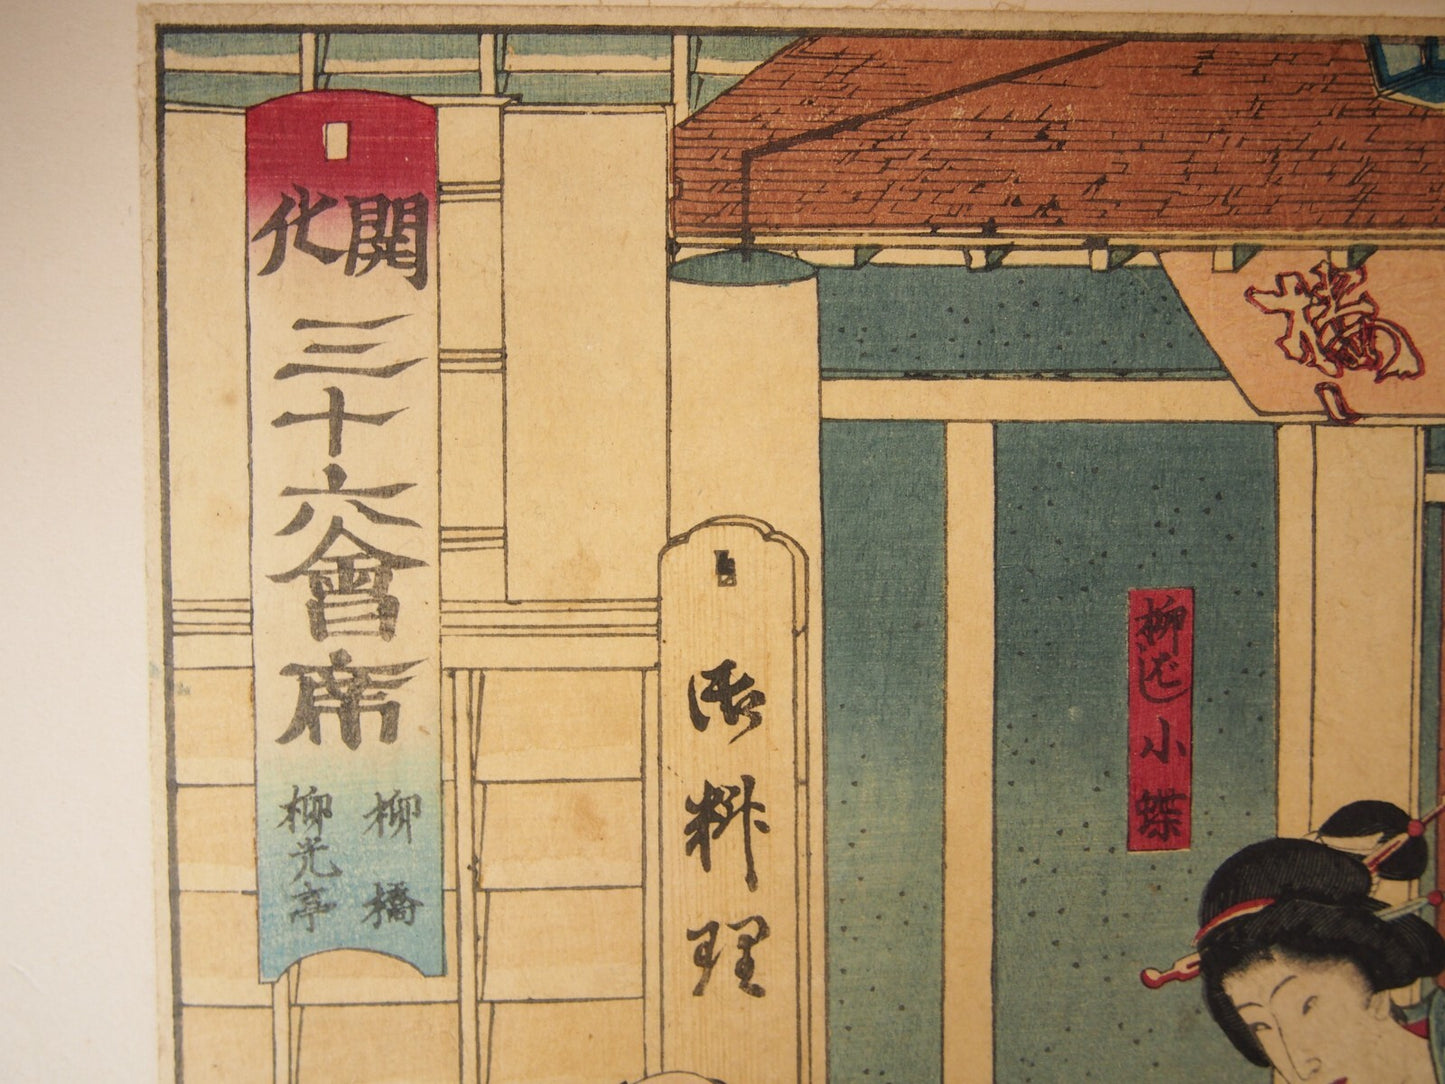 開化
三十六會席
柳橋
柳光亭
御料理
柳ばし
小蝶
橋